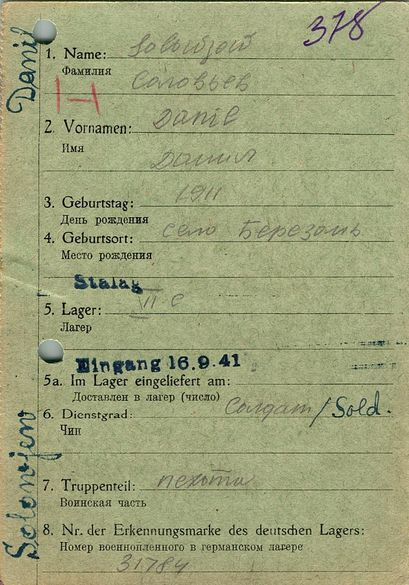 378
Danil
1. Name: Solowjew
Фамилия
Соловьев
2. Vornamen: Danil
Имя
Данил
3. Geburtstag: 1911
День рождения
4. Geburtsort: село Березань
Место рождения
Stalag
5. Lager: VI C
Лагер
Eingang 16.9.41
5a. Im Lager eingeliefert am:
Доставлен в лагер (число)
6. Dienstgrad: Солдат / Sold.
Чин
7. Truppenteil: пехота
Воинская часть
8. Nr. der Erkennungsmarke des deutschen Lagers:
Номер военнопленного в германском лагере
31784
Solowjew